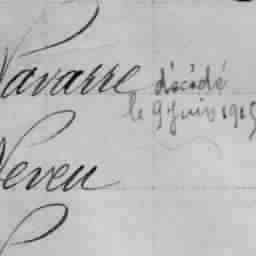 Navarre décédé
le 9 Juin 1915
Neveu